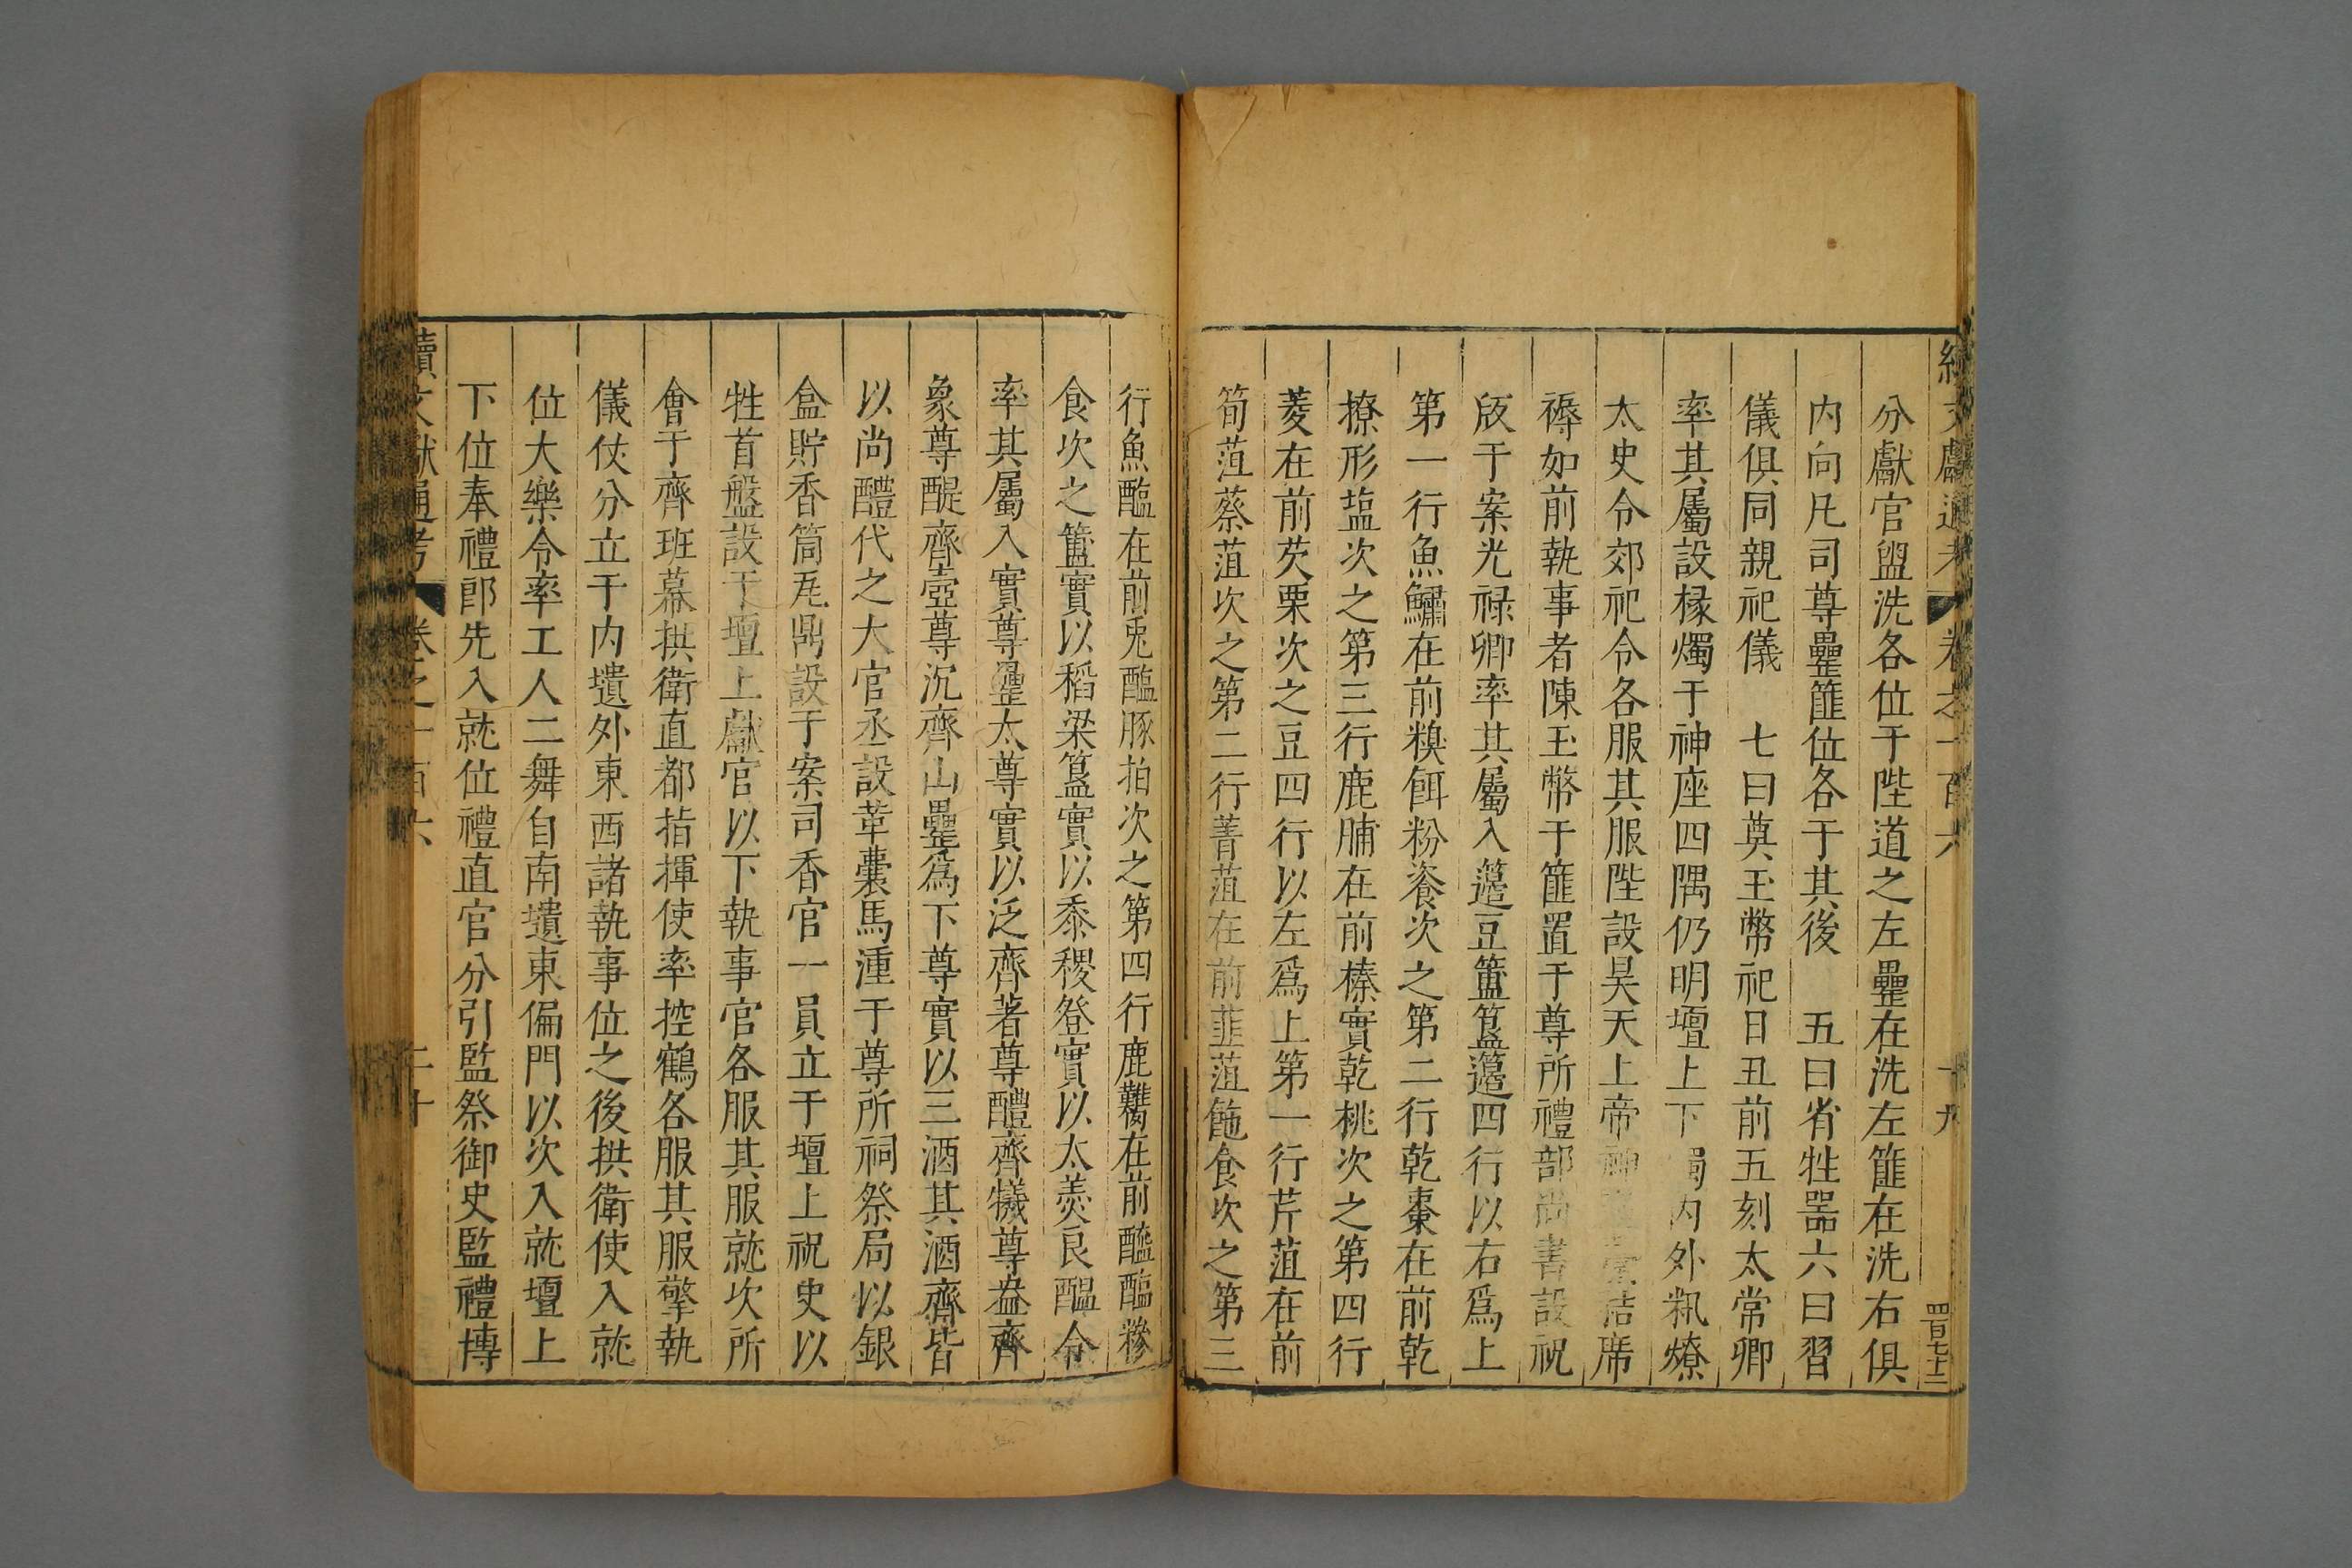 續文獻通考 卷之一百六 十九 四百七十二
分獻官盥洗各位于陛道之左罍在洗左篚在洗右俱
内向凡司尊罍篚位各于其後 五曰省牲器六曰習
儀俱同親祀儀 七曰奠玉幣祀日丑前五刻太常卿
率其屬設椽燭于神座四隅仍明壇上下燭内外籸燎
太史令郊祀令各服其服陛設昊天上帝神藁秸席
褥如前執事者陳玉幣于篚置于尊所禮部尚書設祝
版于案光禄卿率其屬入籩豆簠簋籩四行以右爲上
第一行魚鱐在前糗餌粉餈次之第二行乾棗在前乾
撩形塩次之第三行鹿脯在前榛實乾桃次之第四行
菱在前芡栗次之豆四行以左爲上第一行芹菹在前
筍菹葵菹次之第二行菁菹在前韭菹飽食次之第三
行魚醢在前兎醢豚拍次之第四行鹿臡在前醓醢糝
食次之簠實以稻粱簋實以黍稷登實以太羮良醖令
率其屬入實尊罍太尊實以泛齊著尊醴齊犧尊盎齊
象尊醍齊壺尊沉齊山罍爲下尊實以三酒其酒齊皆
以尚醴代之大官丞設革囊馬湩于尊所祠祭局以銀
盒貯香筒瓦鼎設于案司香官一員立于壇上祝史以
牲首盤設于壇上獻官以下執事官各服其服就次所
會于齊班幕拱衛直都指揮使率控鶴各服其服擎執
儀仗分立于内壝外東西諸執事位之後拱衛使入就
位大樂令率工人二舞自南壝東偏門以次入就壇上
下位奉禮郎先入就位禮直官分引監祭御史監禮博
續文獻通考 卷之一百六 二十